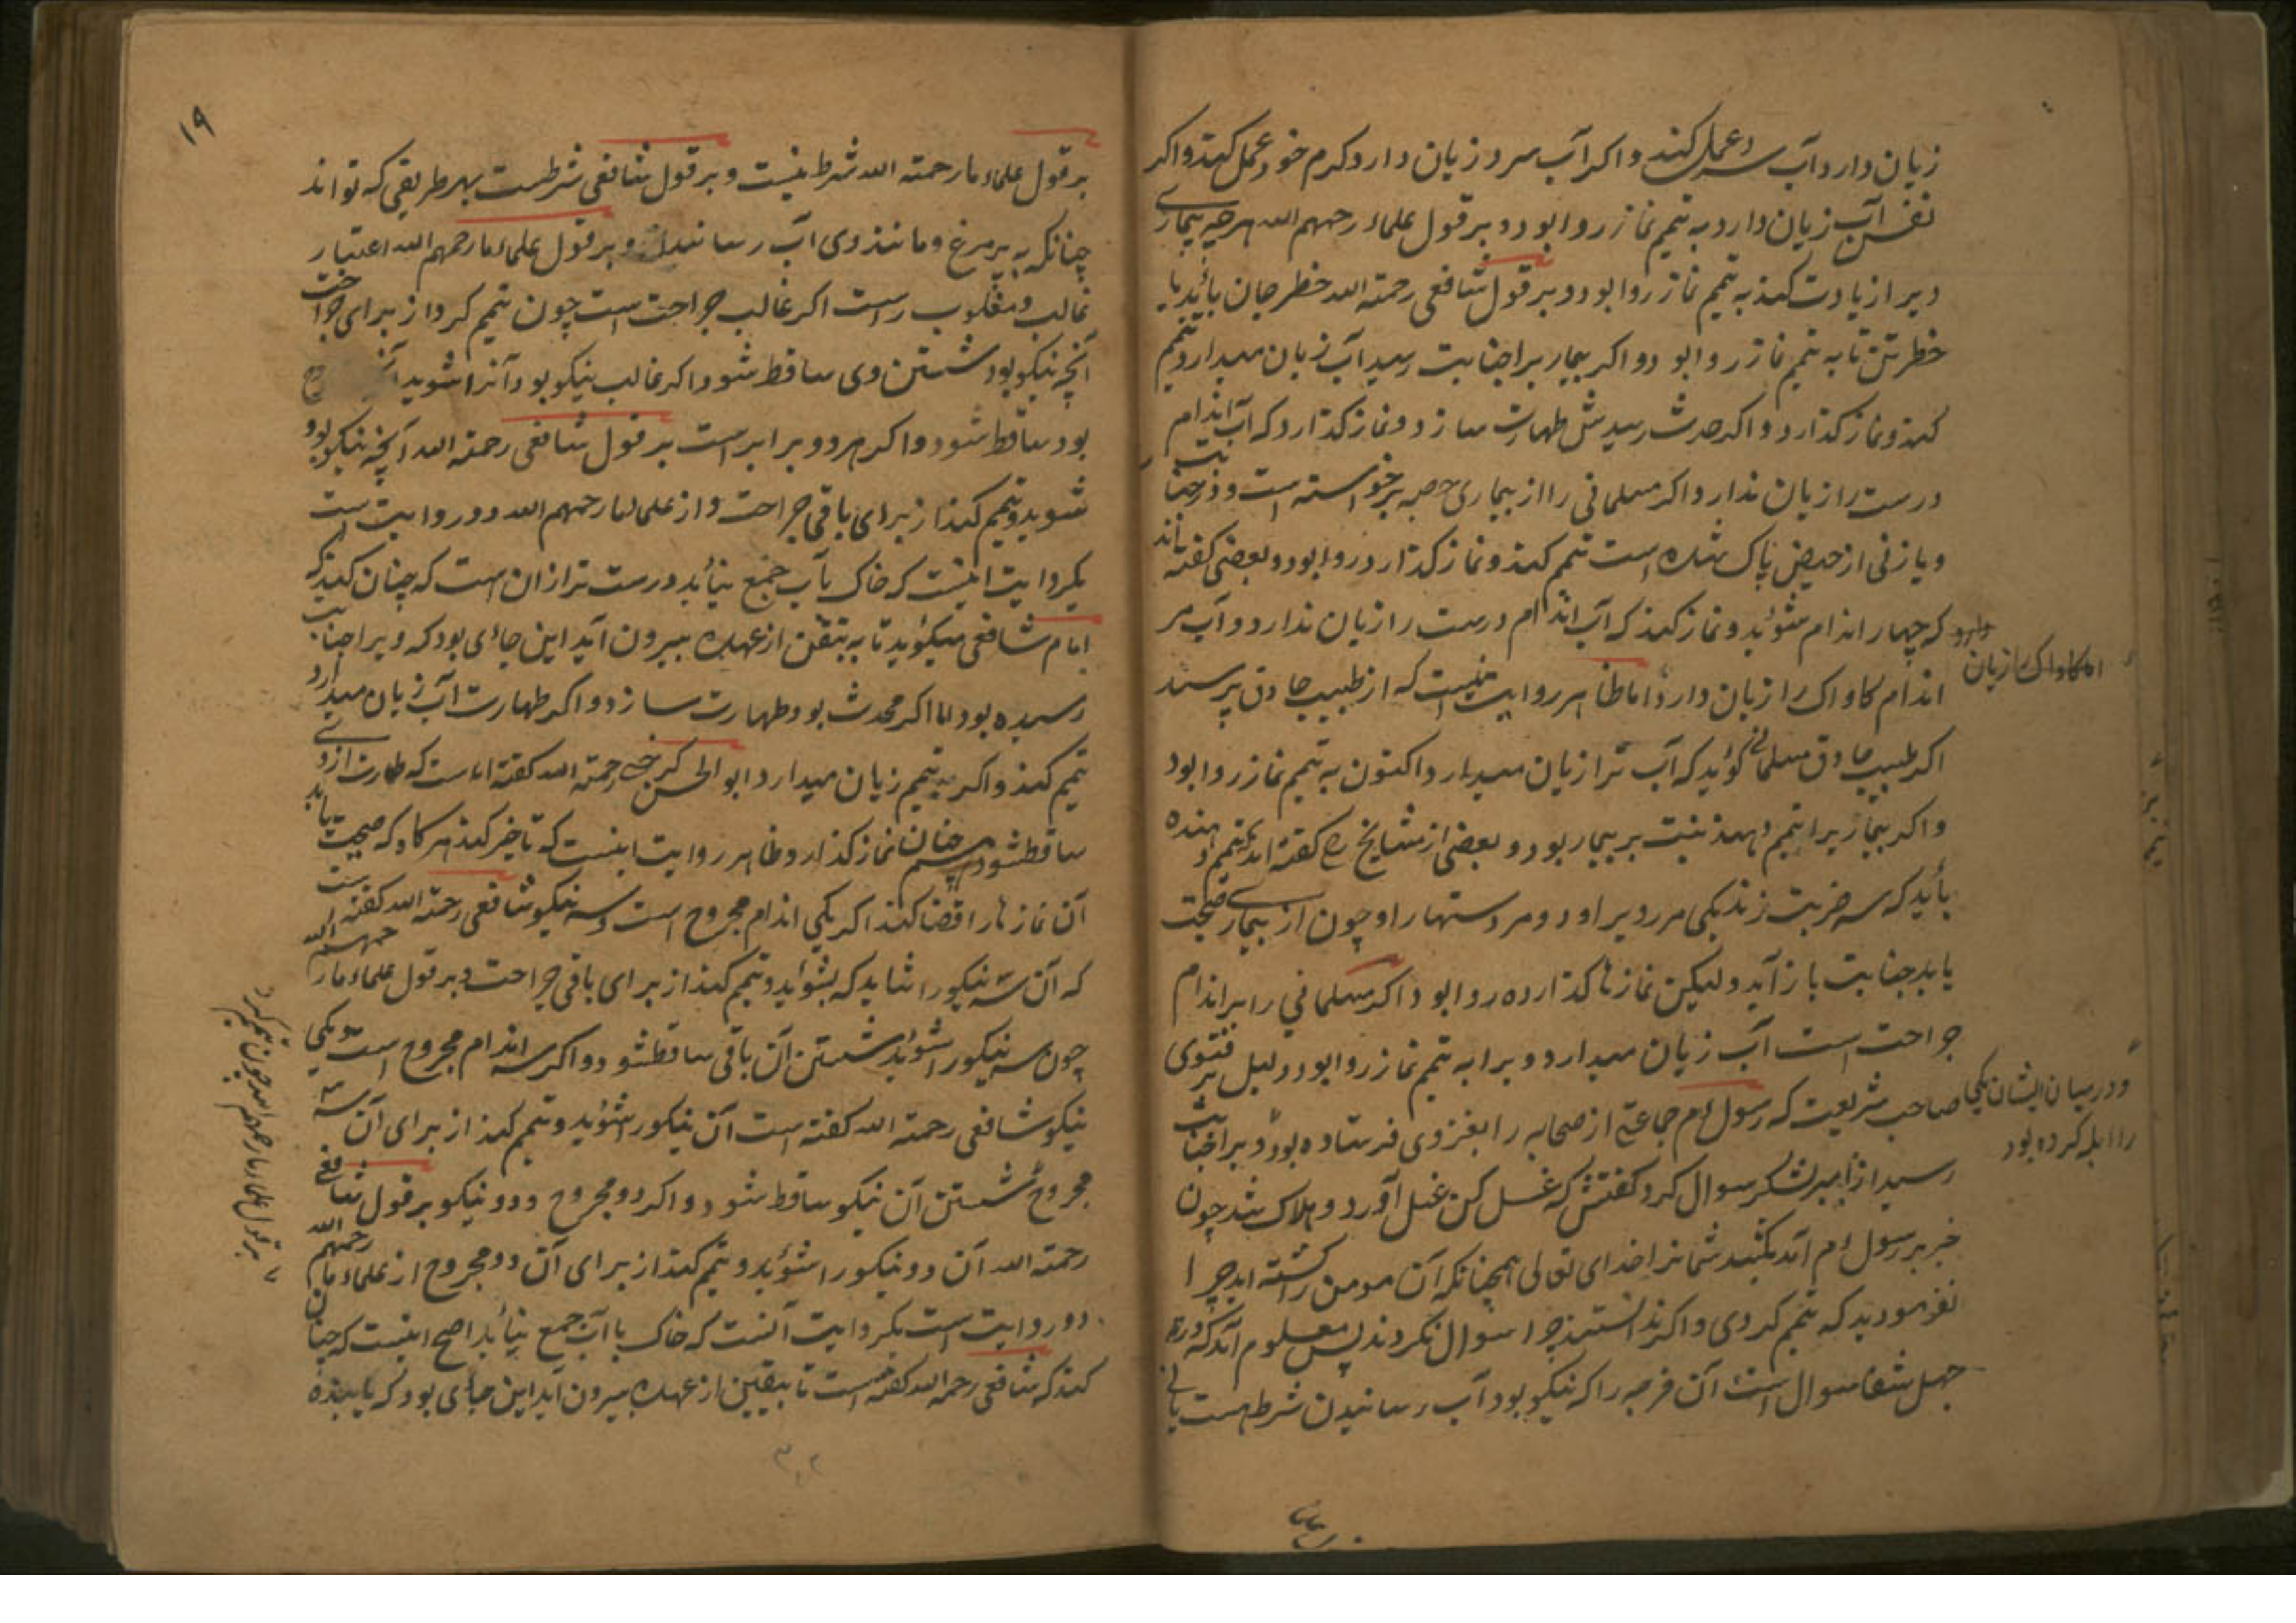 زیان دارد آب سرد عمل کند و اکر آب سرد زیان دارد کرم خود عمل کند و اکر
نفس آب زیان دارد به تیمم نماز روا بود و بر قول علماء رحمهم الله هرچه بیماری
ویرا زیادت کند به تیمم نماز روا بود و بر قول شافعی رحمته الله خطر جان باید یا
خطر تن تا به تیمم نماز روا بود و اکر بیمار برا جنابت رسید آب زیان میدارد تیمم
کند و نماز کذارد و اکر حدث رسیدش طهارت سازد و نماز کذارد که آب اندام
درست را زیان ندارد و اکر مسلمانی را از بیماری حصبه برخواسته است و در جنابت
و یا زنی از حیض پاک شده است تیمم کند و نماز کذارد روا بود و بعضی کفته اند
که چهار اندام شوید و نماز کند که آب اندام درست را زیان ندارد و آب مر
اندام کاواک را زیان دارد اما ظاهر روایت اینست که از طبیب حاذق پرسند
اما کاواک را زیان دارد
اکر طبیب حاذق مسلمانی کوید که آب ترا زیان میدارد اکنون به تیمم نماز روا بود
و اکر بیمار برا تیمم دهند نیت بر بیمار بود و بعضی از مشایخ رح کفته اند تیمم دهنده
باید که سه ضربت زند یکی مر روی او را و دو مر دستها را و چون از بیماری صحت
یابد جنابت باز آید ولیکن نمازها کذارده روا بود و اکر مسلمانی را بر اندام
جراحت است آب زیان میدارد ویرا به تیمم نماز روا بود دلیل بر فتوی
صاحب شریعت که رسول عم جماعتی از صحابه را بغزوی فرستاده بود و ویرا جنابت
و در میان ایشان یکی را ابله کرده بود
رسید از امیر لشکر سوال کرد کفتش که غسل کن غسل آورد و هلاک شد چون
خبر بر رسول عم آمد بکشد شمانرا خدای تعالی همچنانکه آن مومن را کشته اید چرا
نفرمودید که تیمم کردی و اکر ندانستید چرا سوال نکردند پس معلوم آمد که درد
جهل شفا سوال است آن فرجه را که نیکو بود آب رسانیدن شرط هست یا نی
۱۹
بر قول علماء ما رحمته الله شرط نیست و بر قول شافعی شرطست بهر طریقی که تواند
چنانکه به پر مرغ و مانند وی آب رسانید و بر قول علماء ما رحمهم الله اعتبار
غالب و مغلوب راست اکر غالب جراحت است چون تیمم کرد از برای جراحت
آنچه نیکو بود شستن وی ساقط شود و اکر غالب نیکو بود آنرا شوید
بود ساقط شود و اکر هر دو برابر است بر قول شافعی رحمته الله آنچه نیکو بود
شوید و تیمم کند از برای باقی جراحت و از علماء ما رحمهم الله دو روایت است
یکروایت اینست که خاک بآب جمع نیاید درست تر از ان است که چنان کند که
امام شافعی میکوید تا به تیقن از عهده بیرون آید این جای بود که ویرا جنابت
رسیده بود اما اکر محدث بود طهارت سازد و اکر طهارت آب زیان میدارد
تیمم کند و اکر به تیمم زیان میدارد ابو الحسن کرخی رحمته الله کفته است که طهارت از وی
ساقط شود همچنان نماز کذارد و ظاهر روایت اینست که تاخیر کند هر کاه که صحت یابد
آن نمازها را قضا کند اکر یکی اندام مجروح است و سه نیکو شافعی رحمته الله کفته است
که آن سه نیکو را شاید که بشوید و تیمم کند از برای باقی جراحت و بر قول علماء ما رحمهم الله
چون سه نیکو را شوید شستن آن باقی ساقط شود و اکر سه اندام مجروح است و یکی
نیکو شافعی رحمته الله کفته است آن نیکو را شوید و تیمم کند از برای آن سه
مجروح شستن آن نیکو ساقط شود و اکر دو مجروح و دو نیکو بر قول شافعی
بر قول علماء ما رحمهم الله چون تیمم کرد
رحمته الله آن دو نیکو را شوید و تیمم کند از برای آن دو مجروح از علماء ما رحمهم الله
دو روایت است یکروایت آنست که خاک با آب جمع نیاید اصح اینست که چنان
کند که شافعی رحمه الله کفته است تا بیقین از عهده بیرون آید این جای بود که یابنده